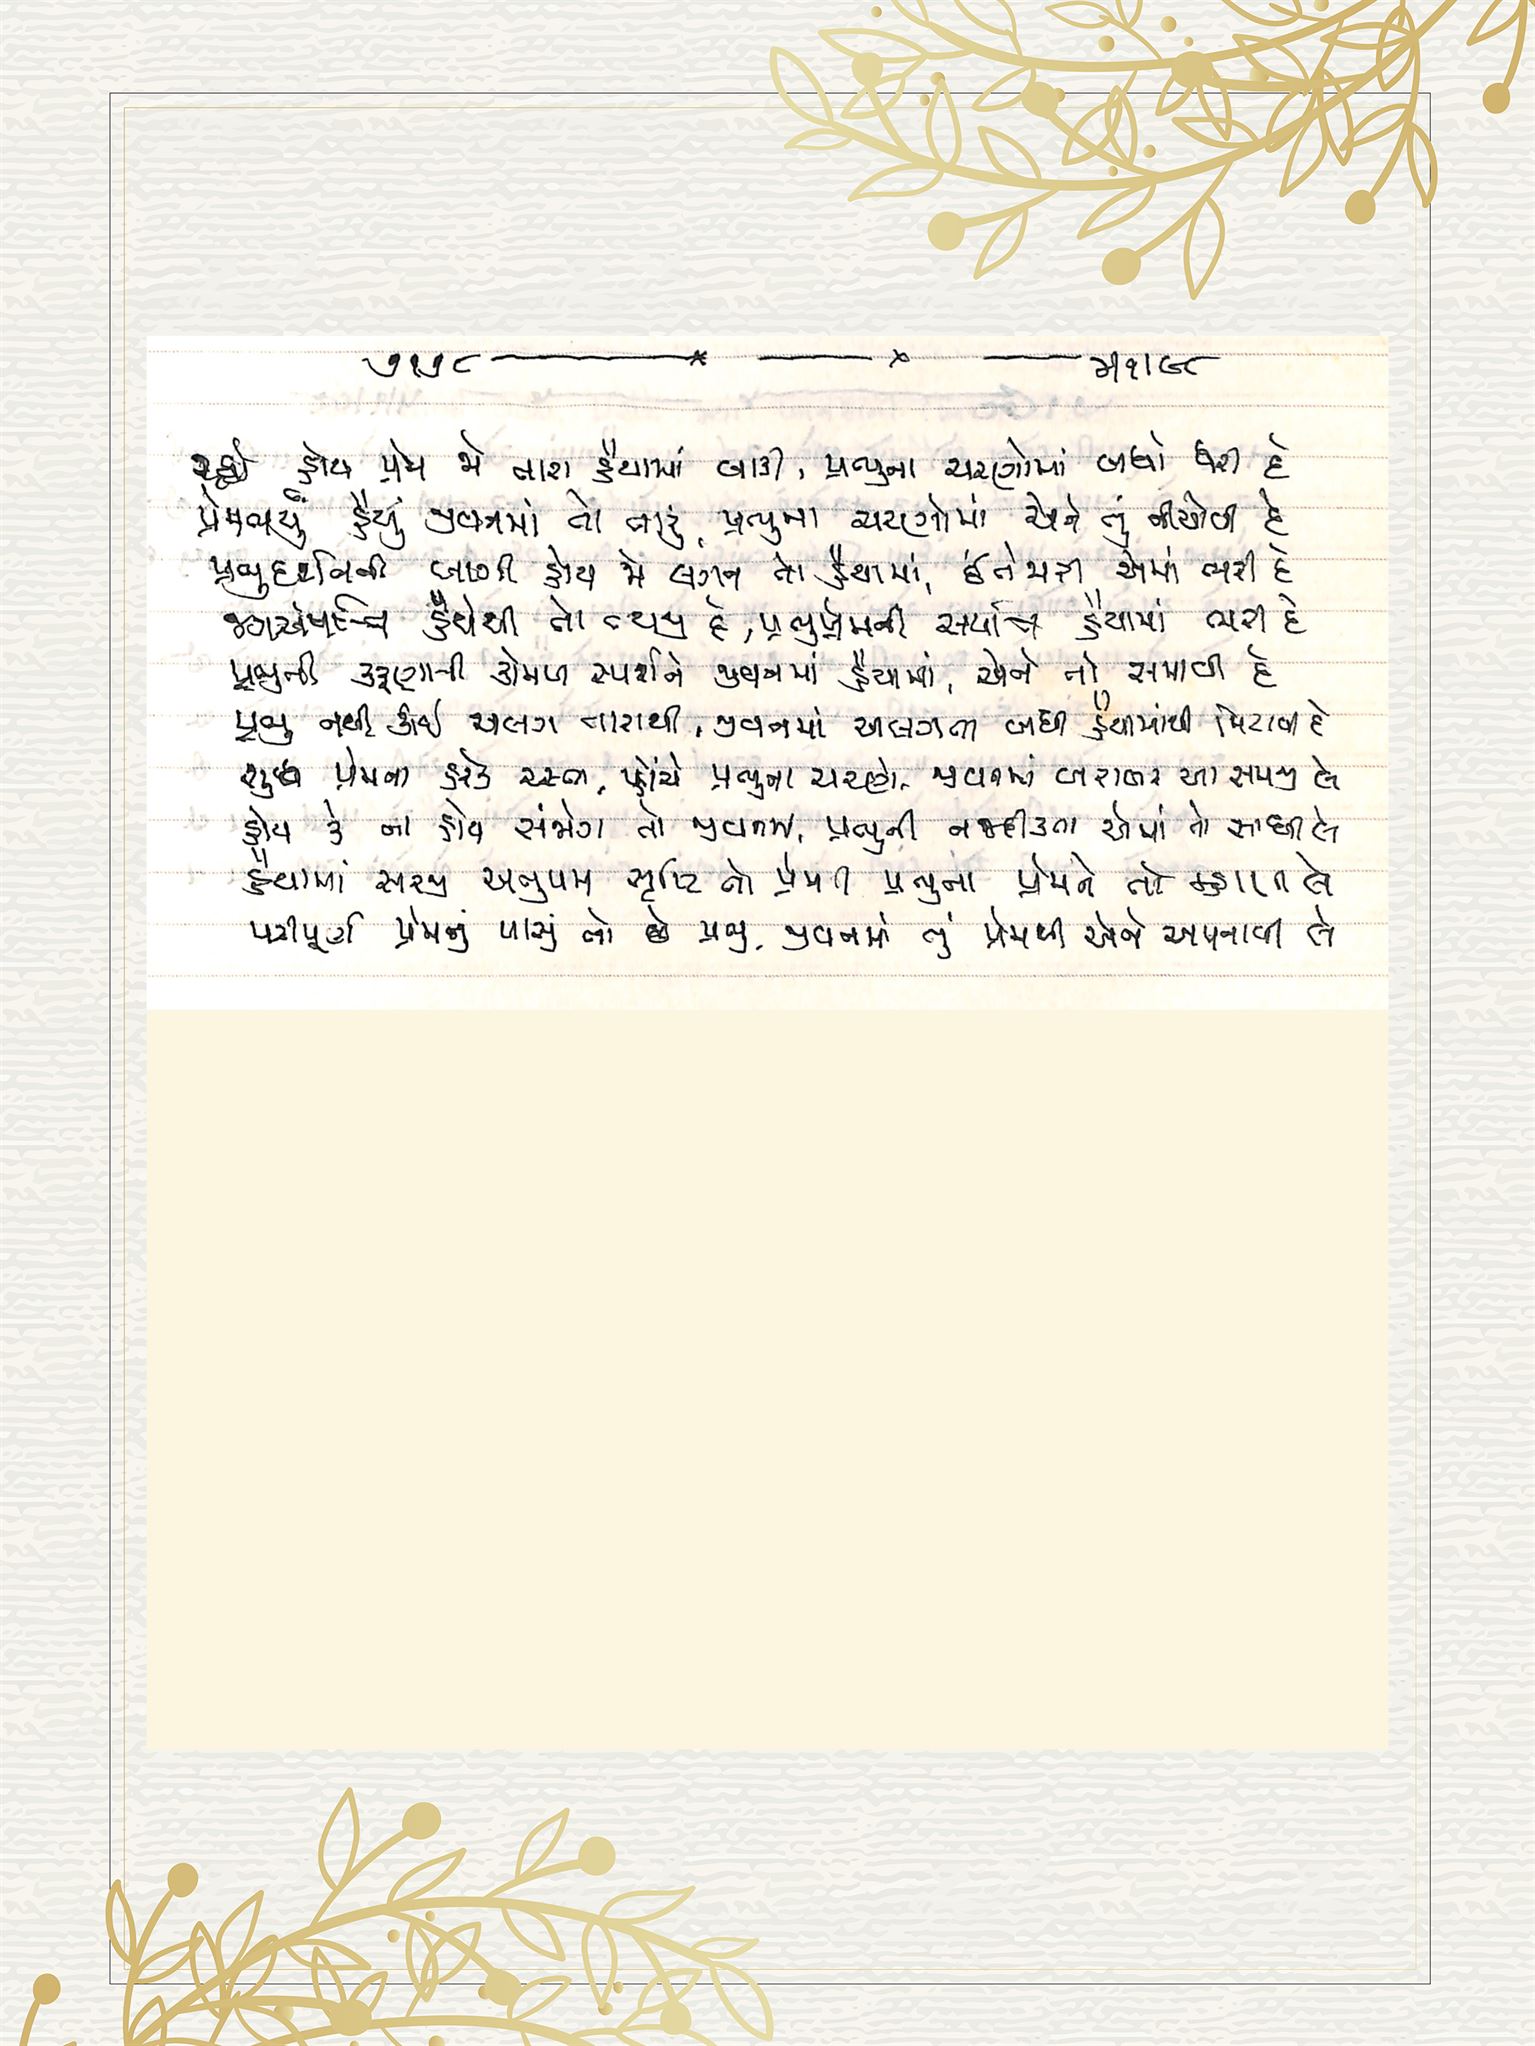 ૭૧૭૮ ——— * — × — ૫૧૧૯૮
રહ્યો હોય પ્રેમ જો તારા હૈયામાં બાકી, પ્રભુના ચરણોમાં બધો ધરી દે
પ્રેમભર્યું હૈયું જીવનમાં તો તારું, પ્રભુના ચરણોમાં એને તું નીચોવી દે
પ્રભુદર્શનની જાગી હોય જો લગન તો હૈયામાં, ઇંતેજારી એમાં ભરી દે
હૈયેથી તો ત્યજી દે, પ્રભુપ્રેમની સર્વોચ્ચ હૈયામાં ભરી દે
પ્રભુની કરુણાની કોમળ સ્પર્શને જીવનમાં હૈયામાં, એને તો સમાવી દે
પ્રભુ નથી કાંઈ અલગ તારાથી, જીવનમાં અલગતા બધી હૈયામાંથી મિટાવી દે
શુદ્ધ પ્રેમના હરેક રસ્તા, પહોંચે પ્રભુના ચરણે, જીવનમાં બરાબર આ સમજી લે
હોય કે ના હોય સંજોગ તો જીવનમાં, પ્રભુની નજદીકતા એમાં તો સાધી લે
હૈયામાં સરજી અનુપમ સૃષ્ટિ તો પ્રેમની પ્રભુના પ્રેમને તો લે
પરીપૂર્ણ પ્રેમનું પાસું તો છે પ્રભુ, જીવનમાં તું પ્રેમથી એને અપનાવી લે